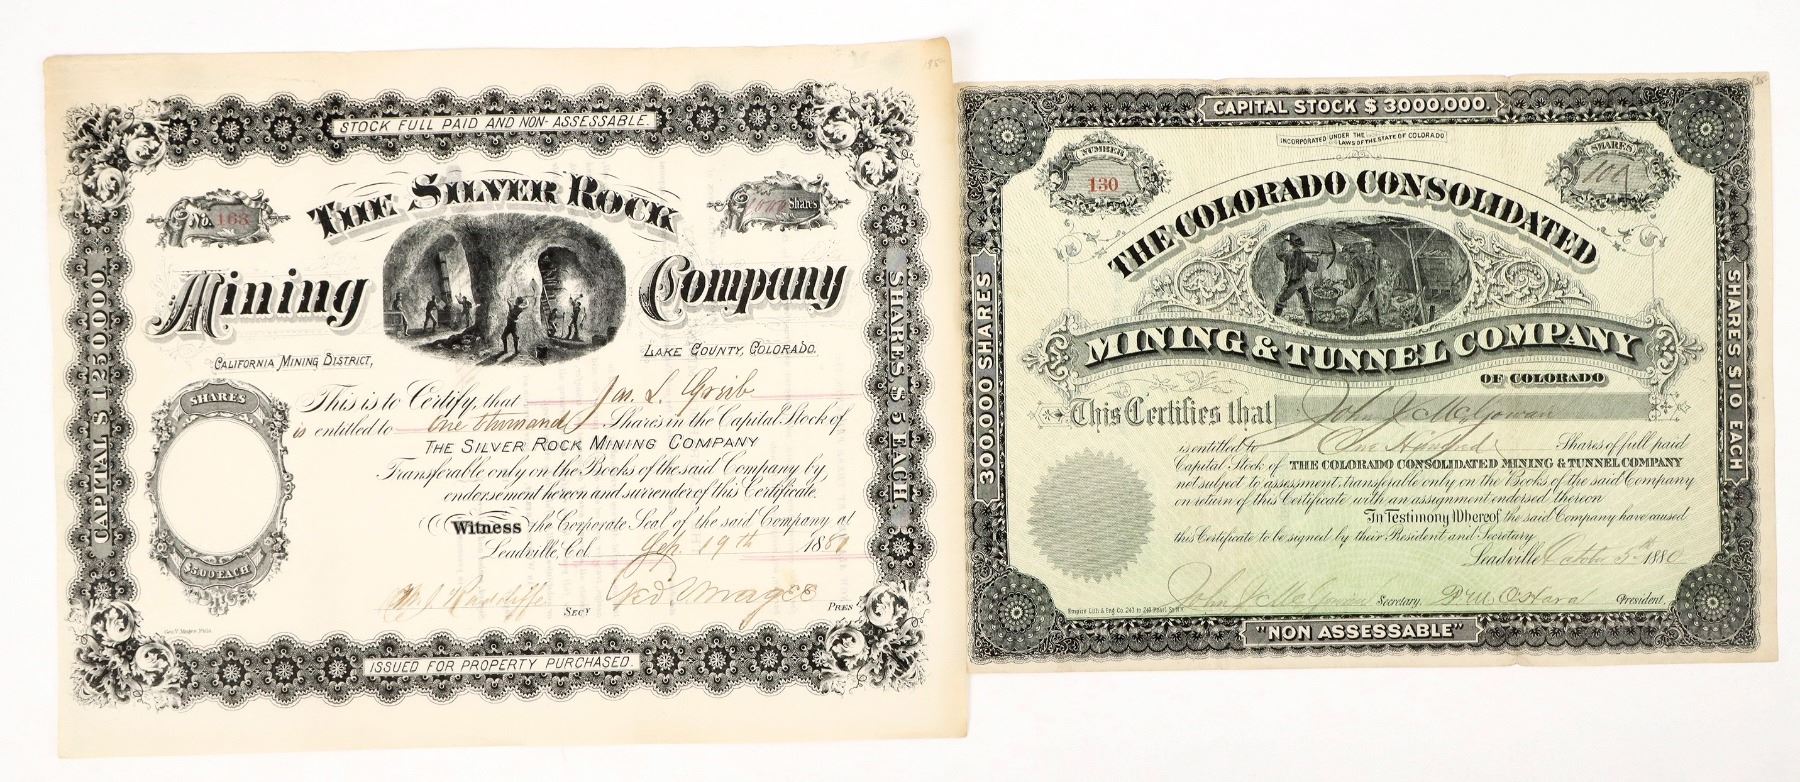 STOCK FULL PAID AND NON-ASSESSABLE.
No. 163
1000 Shares
THE SILVER ROCK
Mining Company
CALIFORNIA MINING DISTRICT,
LAKE COUNTY, COLORADO.
CAPITAL $ 1.250.000.
SHARES, $5 EACH.
SHARES
$5.00 EACH
This is to Certify, that Jas. L. Greib
is entitled to One thousand Shares in the Capital Stock of
THE SILVER ROCK MINING COMPANY
Transferable only on the Books of the said Company by
endorsement hereon and surrender of this Certificate.
Witness the Corporate Seal of the said Company at
Leadville, Col. Sep 19th 1880
W. J. Radcliffe SECY Geo. Magee PRES
ISSUED FOR PROPERTY PURCHASED.
CAPITAL STOCK $ 3.000.000.
INCORPORATED UNDER THE LAWS OF THE STATE OF COLORADO
NUMBER
130
SHARES
100
THE COLORADO CONSOLIDATED
MINING & TUNNEL COMPANY
OF COLORADO
300.000 SHARES
SHARES $10 EACH
This Certifies that John J. McGowan
is entitled to One Hundred Shares of full paid
Capital Stock of THE COLORADO CONSOLIDATED MINING & TUNNEL COMPANY
not subject to assessment, transferable only on the Books of the said Company
on return of this Certificate with an assignment endorsed thereon
In Testimony Whereof the said Company have caused
this Certificate to be signed by their President and Secretary.
Leadville October 5th 1880
John J. McGowan Secretary. Wm O'Hara President.
Empire Lith & Eng Co.
"NON ASSESSABLE"